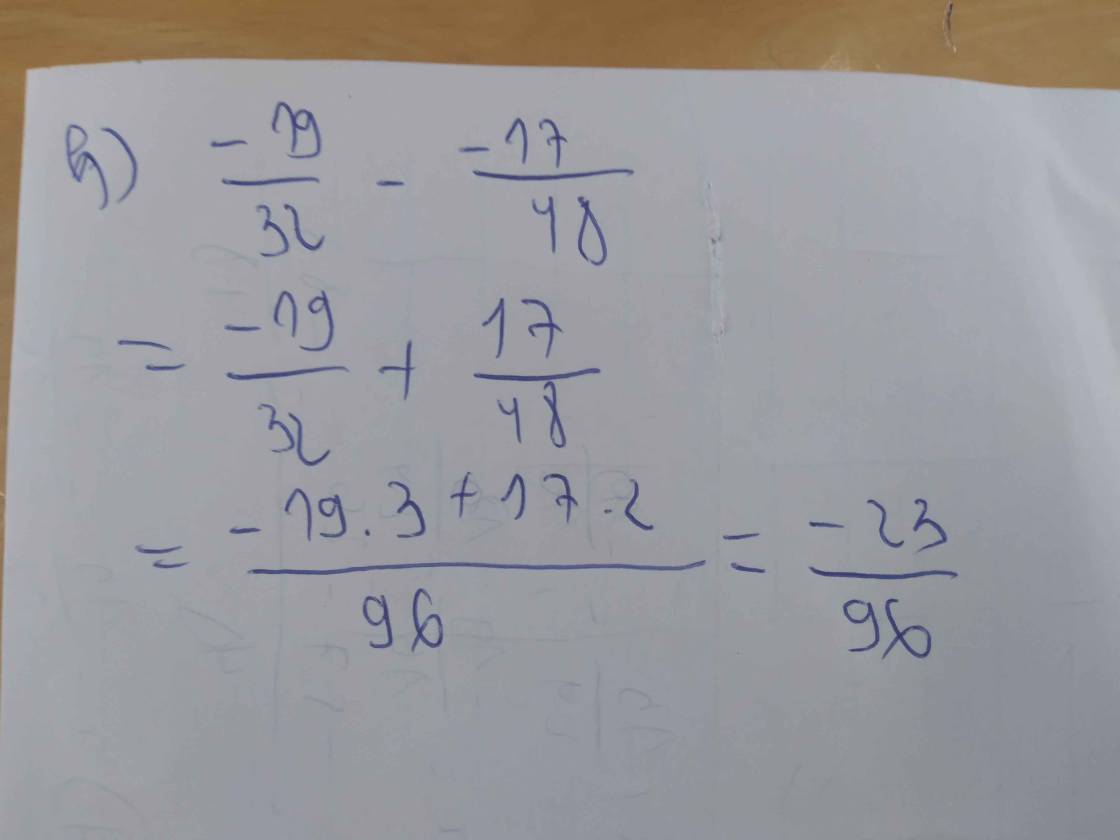 b) \frac{-19}{32} - \frac{-17}{48}
= \frac{-19}{32} + \frac{17}{48}
= \frac{-19.3 + 17.2}{96} = \frac{-23}{96}